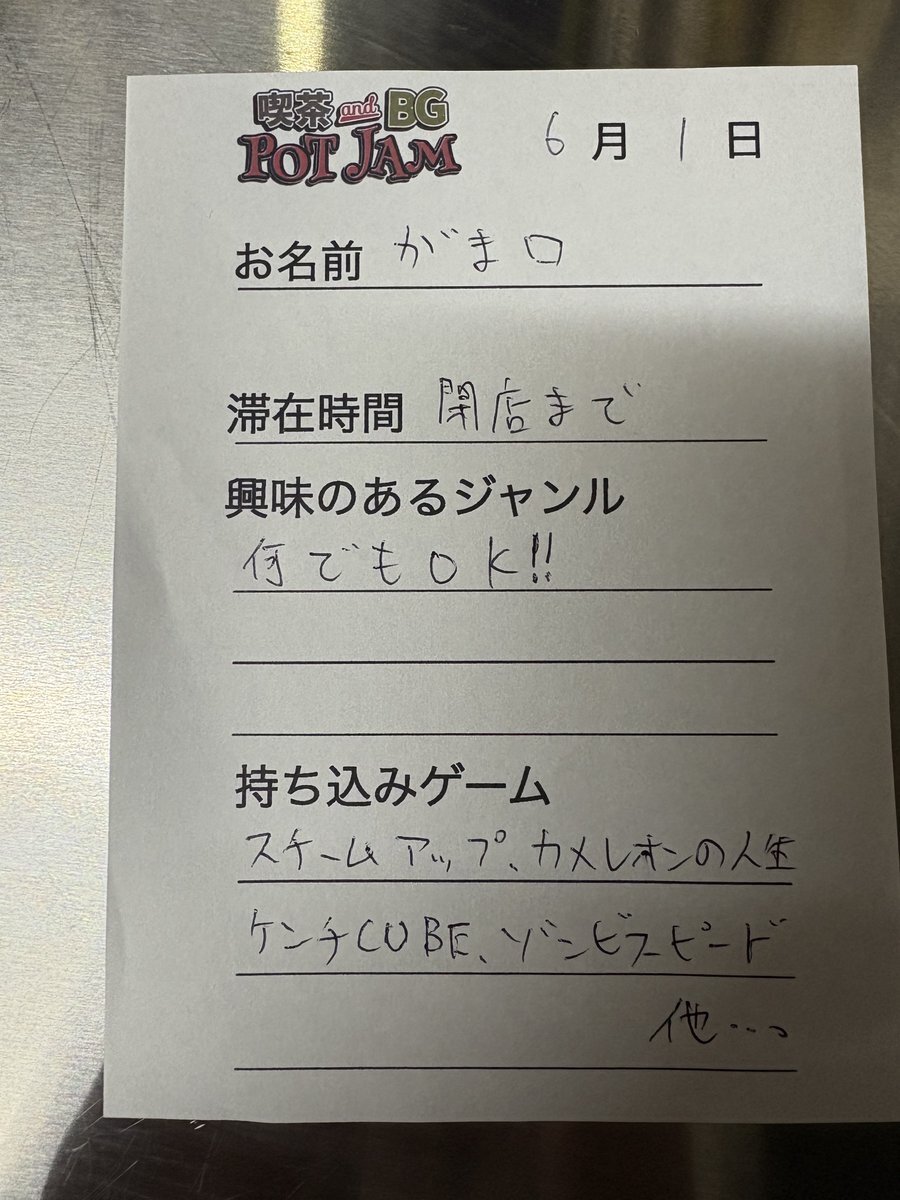 喫茶 and BG
POT JAM
6月1日
お名前 がま口
滞在時間 閉店まで
興味のあるジャンル
何でもOK!!
持ち込みゲーム
スチームアップ、カメレオンの人生
ケンチCUBE、ゾンビスピード
他…。